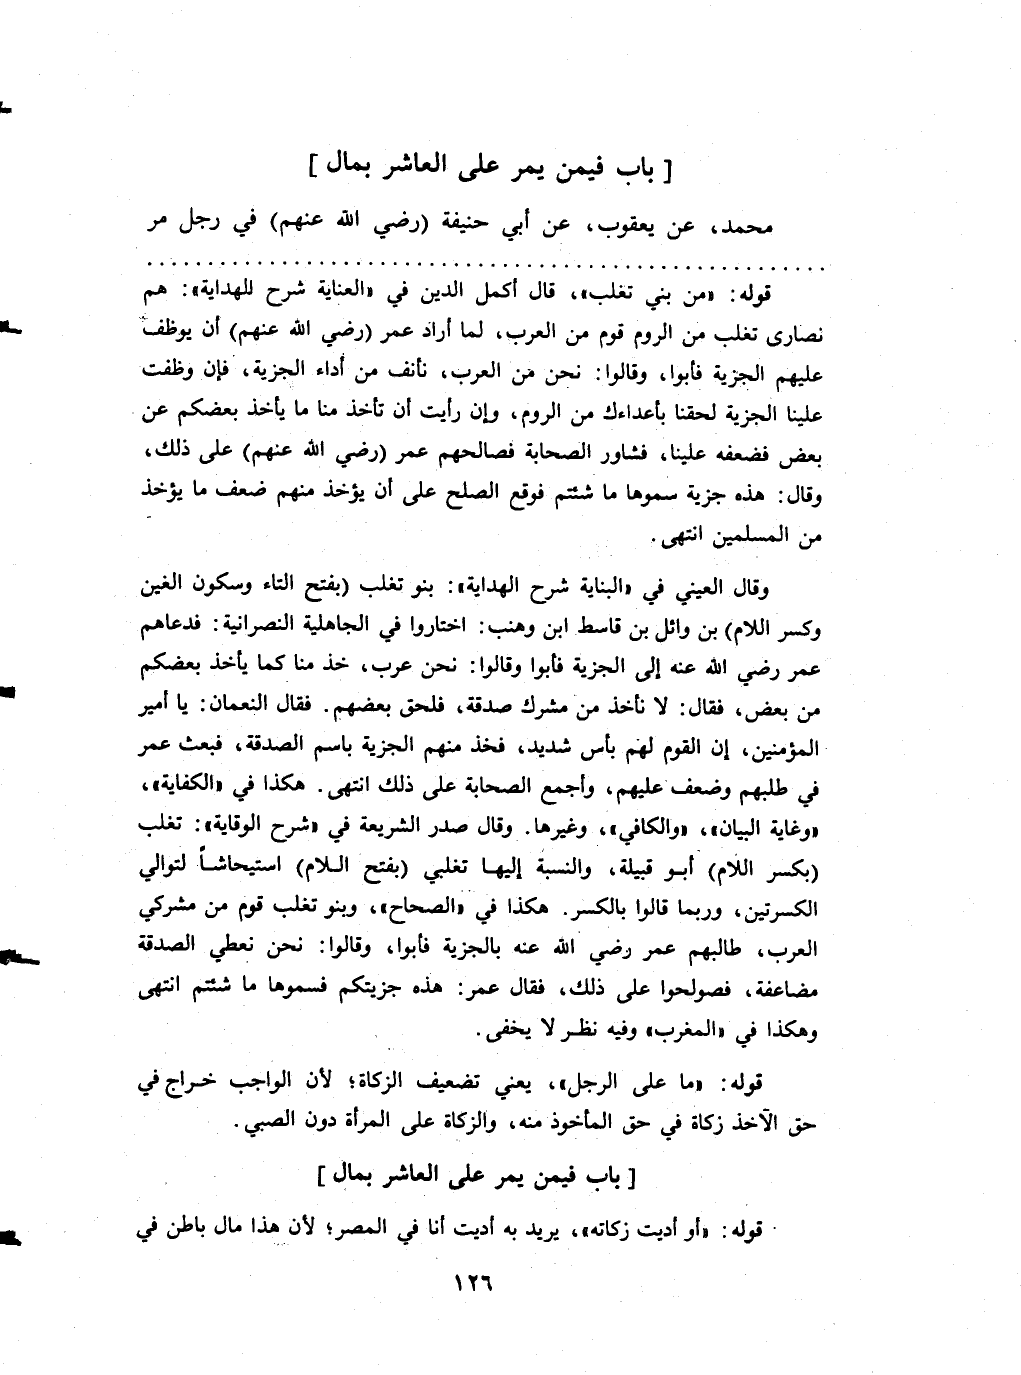 [ باب فيمن يمر على العاشر بمال ]
محمد، عن يعقوب، عن أبي حنيفة (رضي الله عنهم) في رجل مر
قوله: «من بني تغلب»، قال أكمل الدين في «العناية شرح للهداية»: هم
نصارى تغلب من الروم قوم من العرب، لما أراد عمر (رضي الله عنهم) أن يوظف
عليهم الجزية فأبوا، وقالوا: نحن من العرب، نأنف من أداء الجزية، فإن وظفت
علينا الجزية لحقنا بأعداءك من الروم، وإن رأيت أن تأخذ منا ما يأخذ بعضكم عن
بعض فضعفه علينا، فشاور الصحابة فصالحهم عمر (رضي الله عنهم) على ذلك،
وقال: هذه جزية سموها ما شئتم فوقع الصلح على أن يؤخذ منهم ضعف ما يؤخذ
من المسلمين انتهى.
وقال العيني في «البناية شرح الهداية»: بنو تغلب (بفتح التاء وسكون الغين
وكسر اللام) بن وائل بن قاسط ابن وهنب: اختاروا في الجاهلية النصرانية: فدعاهم
عمر رضي الله عنه إلى الجزية فأبوا وقالوا: نحن عرب، خذ منا كما يأخذ بعضكم
من بعض، فقال: لا نأخذ من مشرك صدقة، فلحق بعضهم. فقال النعمان: يا أمير
المؤمنين، إن القوم لهم بأس شديد، فخذ منهم الجزية باسم الصدقة، فبعث عمر
في طلبهم وضعف عليهم، وأجمع الصحابة على ذلك انتهى. هكذا في «الكفاية»،
«وغاية البيان»، «والكافي»، وغيرها. وقال صدر الشريعة في «شرح الوقاية»: تغلب
(بكسر اللام) أبو قبيلة، والنسبة إليها تغلبي (بفتح اللام) استيحاشاً لتوالي
الكسرتين، وربما قالوا بالكسر. هكذا في «الصحاح»، وبنو تغلب قوم من مشركي
العرب، طالبهم عمر رضي الله عنه بالجزية فأبوا، وقالوا: نحن نعطي الصدقة
مضاعفة، فصولحوا على ذلك، فقال عمر: هذه جزيتكم فسموها ما شئتم انتهى
وهكذا في «المغرب» وفيه نظر لا يخفى.
قوله: «ما على الرجل»، يعني تضعيف الزكاة؛ لأن الواجب خراج في
حق الآخذ زكاة في حق المأخوذ منه، والزكاة على المرأة دون الصبي.
[ باب فيمن يمر على العاشر بمال ]
قوله: «أو أديت زكاته»، يريد به أديت أنا في المصر؛ لأن هذا مال باطن في
١٢٦